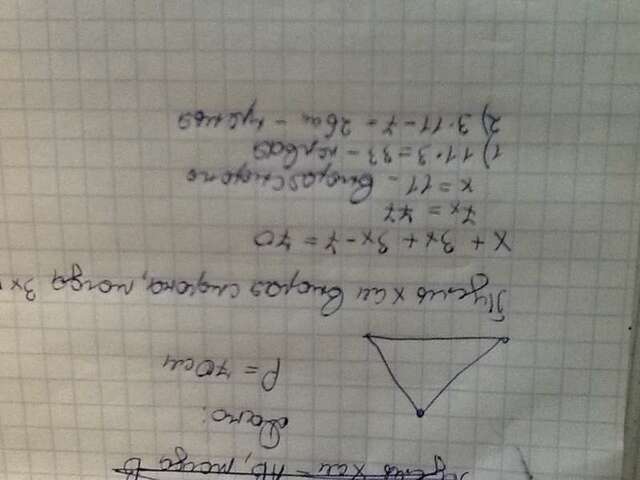 Пусть х см - АВ, тогда В
Дано:
P = 70 см
Пусть х см вторая сторона, тогда 3х
х + 3х + 3х - 7 = 70
7х = 77
х = 11 - вторая сторона
1) 11 · 3 = 33 - первая
2) 3 · 11 - 7 = 26 см - третья